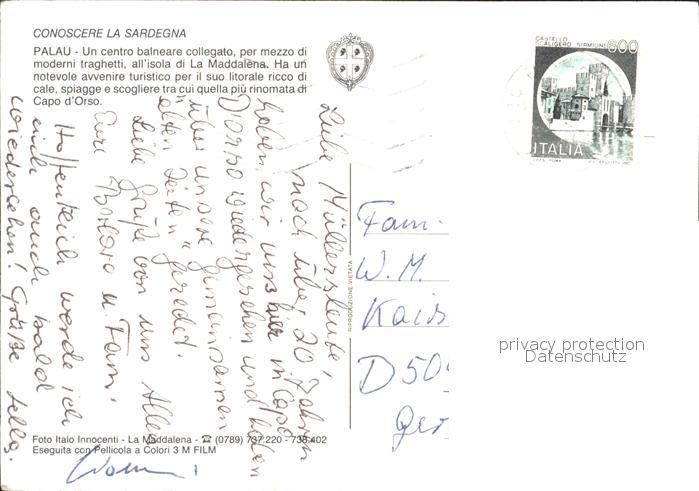 CONOSCERE LA SARDEGNA
PALAU - Un centro balneare collegato, per mezzo di
moderni traghetti, all'isola di La Maddalena. Ha un
notevole avvenire turistico per il suo litorale ricco di
cale, spiagge e scogliere tra cui quella più rinomata di
Capo d'Orso.
Liebe Müllersleute,
nach über 20 Jahren
haben wir uns hier in Capo
D'orso wiedergesehen und haben
über unsere gemeinsamen
"alten Zeiten" geredet.
Liebe Grüße von uns Allen
Eure u. Fam.
Hoffentlich werde ich
euch auch bald
wiedersehen! Grüße
Foto Italo Innocenti - La Maddalena - ☎ (0789) 737.220 - 738.402
Eseguita con Pellicola a Colori 3 M FILM
RIPRODUZIONE VIETATA
CASTELLO
SCALIGERO SIRMIONE 600
ITALIA
Fam.
W. M.
D 50
Ger
privacy protection
Datenschutz